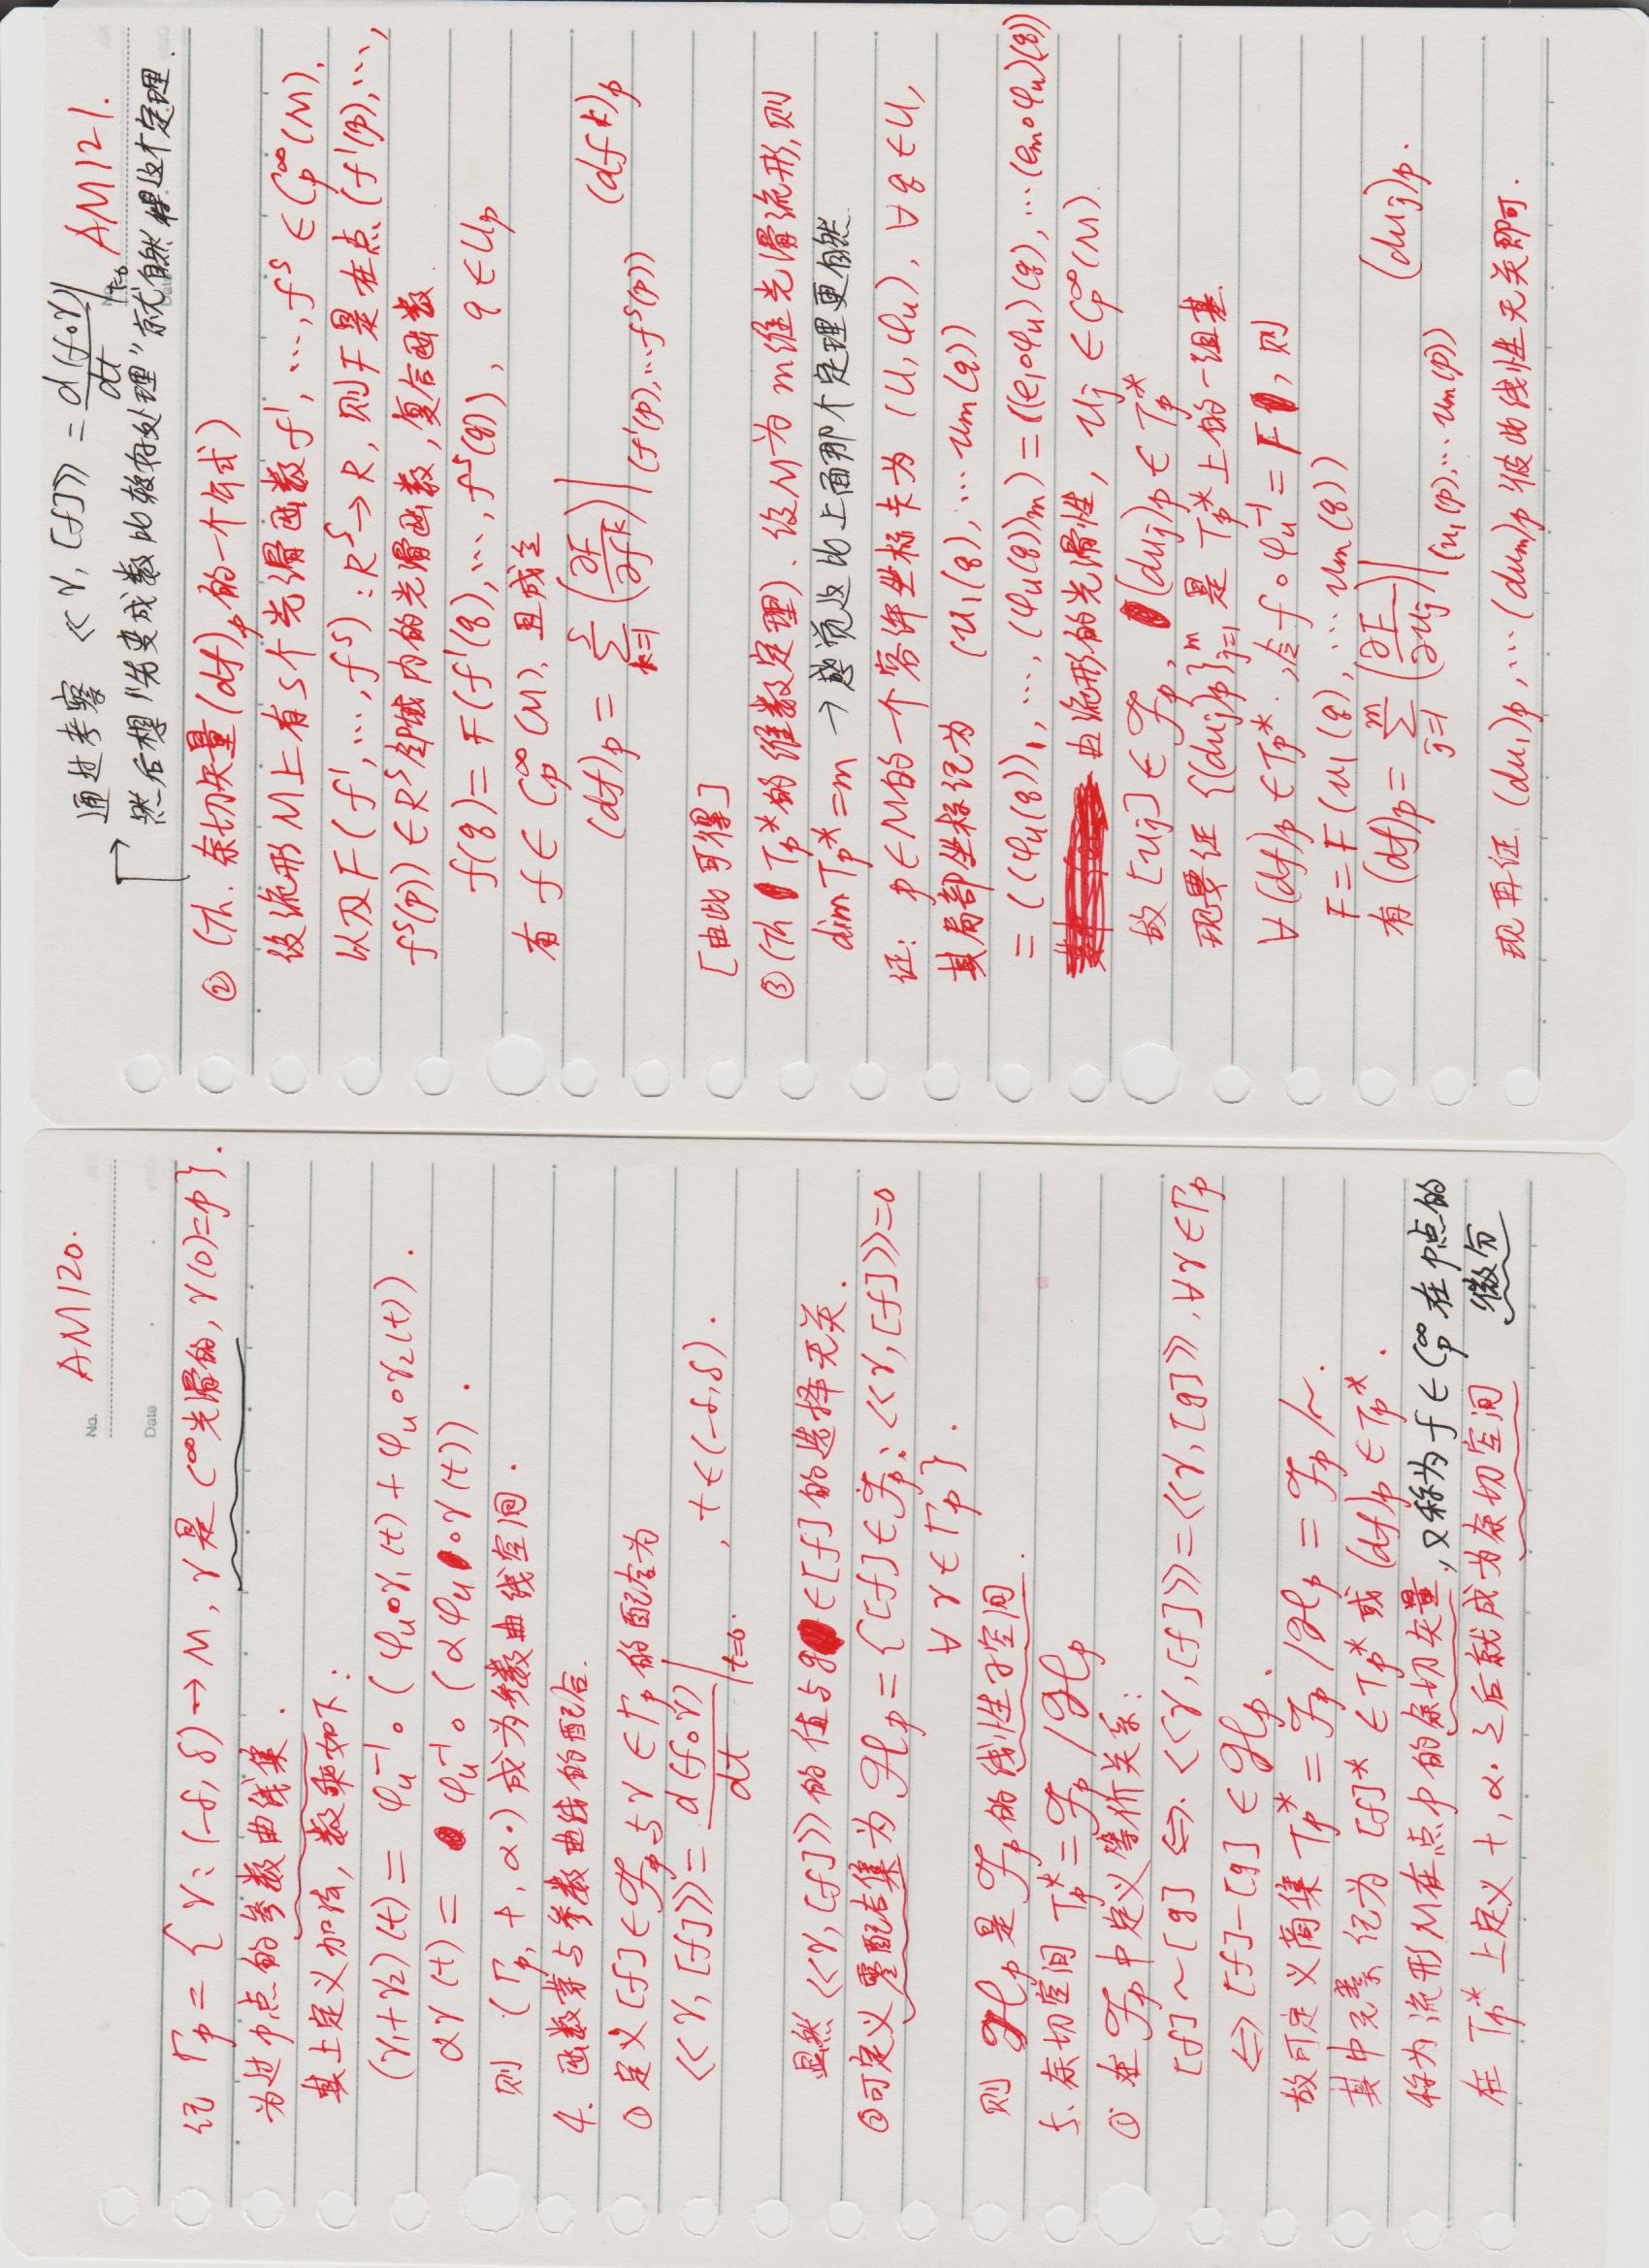 No. AM120.
Date
记 Γp = { γ: (-δ, δ) → M, γ是 C^∞光滑的, γ(0)=p }.
为过p点的参数曲线集.
其上定义加法, 数乘如下:
(γ1+γ2)(t) = φu^-1 ∘ ( φu∘γ1(t) + φu∘γ2(t) ).
αγ(t) = φu^-1 ∘ (αφu∘γ(t)).
则 (Γp, +, α·) 成为参数曲线空间.
4. 函数芽与参数曲线的配合.
① 定义[f]∈ℱp与γ∈Γp的配合为
<<γ, [f]>> = d(f∘γ)/dt |t=0. , t∈(-δ,δ).
显然<<γ,[f]>>的值与g∈[f]的选择无关.
②可定义零配合集为 ℋp = {[f]∈ℱp: <<γ,[f]>>=0
∀γ∈Γp}.
则 ℋp 是 ℱp 的线性子空间.
5. 余切空间 Tp* = ℱp / ℋp
① 在 ℱp 中定义等价关系:
[f]~[g] ⇔. <<γ,[f]>>=<<γ,[g]>>, ∀γ∈Γp
⇔ [f]-[g] ∈ ℋp.
故可定义商集 Tp* = ℱp / ℋp = ℱp / ~.
其中元素记为 [f]* ∈ Tp* 或 (df)p ∈ Tp*.
称为流形M在点p的余切矢量, 又称为 f∈Cp^∞ 在p点的
在 Tp* 上定义 +, α· 之后就成为余切空间 微分
通过考察 <<γ, [f]>> = d(f∘γ)/dt |t=0 AM121.
然后想"先变成数比较好处理"就自然得这个定理.
② (Th. 余切矢量(df)p的一个公式)
设流形M上有s个光滑函数f^1, …, f^s ∈ Cp^∞(M),
以及F(f^1, …, f^s): R^s→R, 则F是在点(f^1(p), …,
f^s(p))∈R^s邻域内的光滑函数, 复合函数
f(q) = F(f^1(q), …, f^s(q)), q∈Up
有 f∈Cp^∞(M), 且成立
(df)p = Σ_{k=1}^{s} (∂F/∂f^k)|(f^1(p), …f^s(p)) (df^k)p
[由此可得]
③ (Th Tp*的维数定理). 设M为m维光滑流形, 则
dim Tp* = m → 感觉这比上面那个定理更自然.
证: p∈M的一个容许坐标卡为 (U, φu), ∀q∈U,
其局部坐标记为 (u1(q), … um(q))
= ((φu(q))1, …, (φu(q))m) = ((e1∘φu)(q), … (em∘φu)(q))
由流形的光滑性, uj ∈ Cp^∞(M).
故 [uj] ∈ ℱp, (duj)p ∈ Tp*
现要证 {(duj)p}_{j=1}^{m} 是 Tp* 上的一组基.
∀(df)p∈Tp*., 令 f∘φu^-1 = F, 则
F = F(u1(q), … um(q))
有 (df)p = Σ_{j=1}^{m} (∂F/∂uj)|(u1(p), … um(p)) (duj)p.
现再证 (du1)p, … (dum)p 彼此线性无关即可.